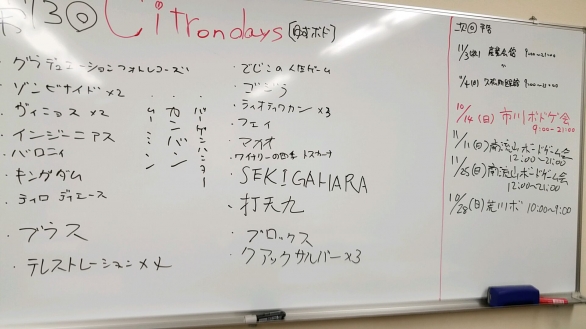 第130 Citrondays [自由ボド]
・グラデュエーションフォトレコーズ
・ゾンビサイド×2
・ヴィニョス×2
・インジーニアス
・バロニィ
・キングダム
・ティロ ディエース
・ブラス
・テレストレーション××
・バーゲンハンター
・カンバン
・ムーミン
・でじこの人生ゲーム
・ゴジラ
・ティオティワカン×3
・フェイ
・マカオ
・ワイナリーの四季 トスカーナ
・SEKIGAHARA
・打天九
・ブロックス
・クアックサルバー×3
次回 予告
9:00〜21:00
10/14(日) 市川ボドゲ会
9:00〜21:00
11/11(日) 南流山ボードゲーム会
12:00〜21:00
11/25(日) 南流山ボードゲーム会
12:00〜21:00
10/28(日) 荒川ボ 10:00〜9:00